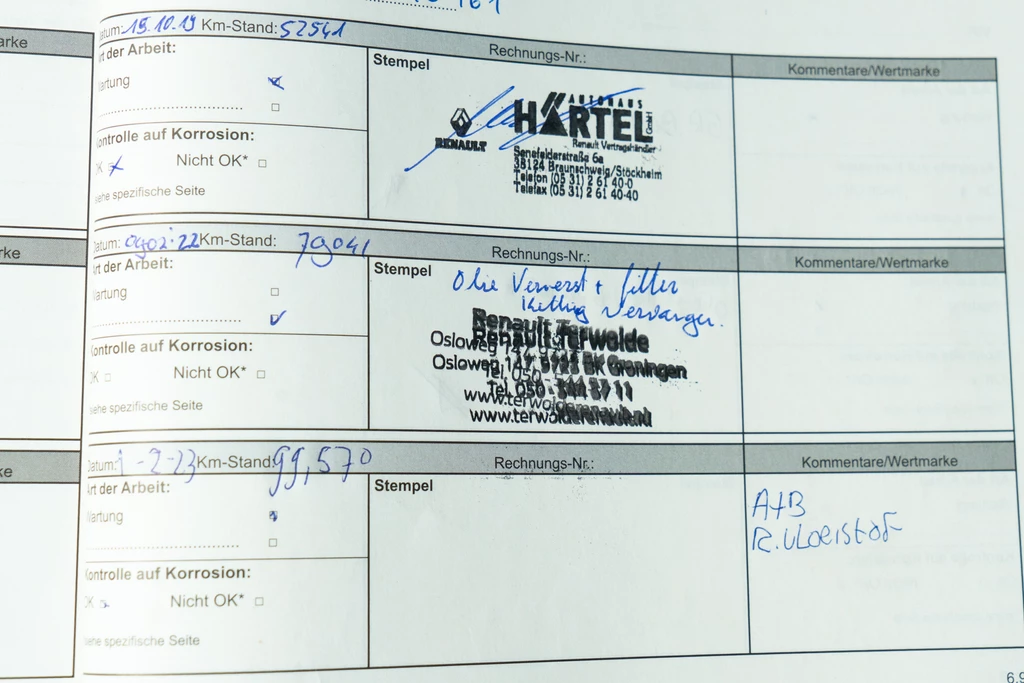 161
arke
atum: 15.10.19 Km-Stand: 52541
Rechnungs-Nr.:
Kommentare/Wertmarke
rt der Arbeit:
Stempel
artung
ontrolle auf Korrosion:
OK Nicht OK*
ehe spezifische Seite
RENAULT
AUTOHAUS
HÄRTEL GmbH
Renault Vertragshändler
Senefelderstraße 6a
38124 Braunschweig/Stöckheim
Telefon (05 31) 2 61 40-0
Telefax (05 31) 2 61 40-40
rke
Datum: 0902·22 Km-Stand: 79041
Rechnungs-Nr.:
Kommentare/Wertmarke
rt der Arbeit:
Stempel
artung
ontrolle auf Korrosion:
OK Nicht OK*
ehe spezifische Seite
Olie Ververst + filter
Ketting Vervangen.
Renault Terwolde
Osloweg 147, 9723 BK Groningen
Tel. 050 -
www.terwolderenault.nl
ke
Datum: 1-2-23 Km-Stand: 99,570
Rechnungs-Nr.:
Kommentare/Wertmarke
rt der Arbeit:
Stempel
artung
ontrolle auf Korrosion:
OK Nicht OK*
ehe spezifische Seite
A+B
R.vloeistof
6.9